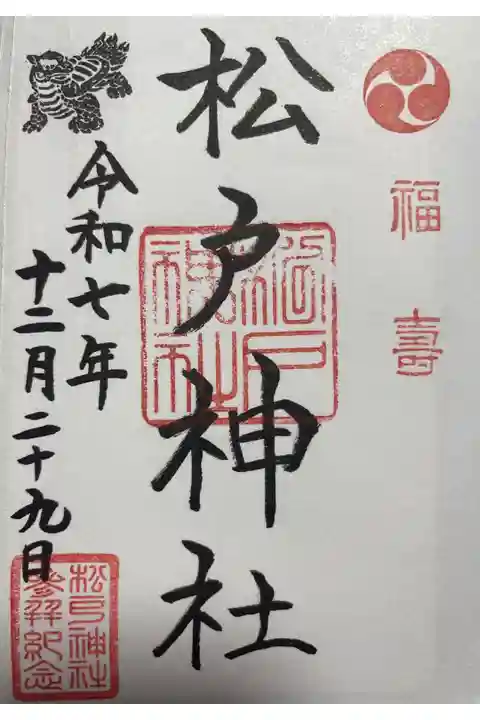 福壽
松戸神社
松戸神社
令和七年
十二月二十九日
松戸神社
参拝紀念